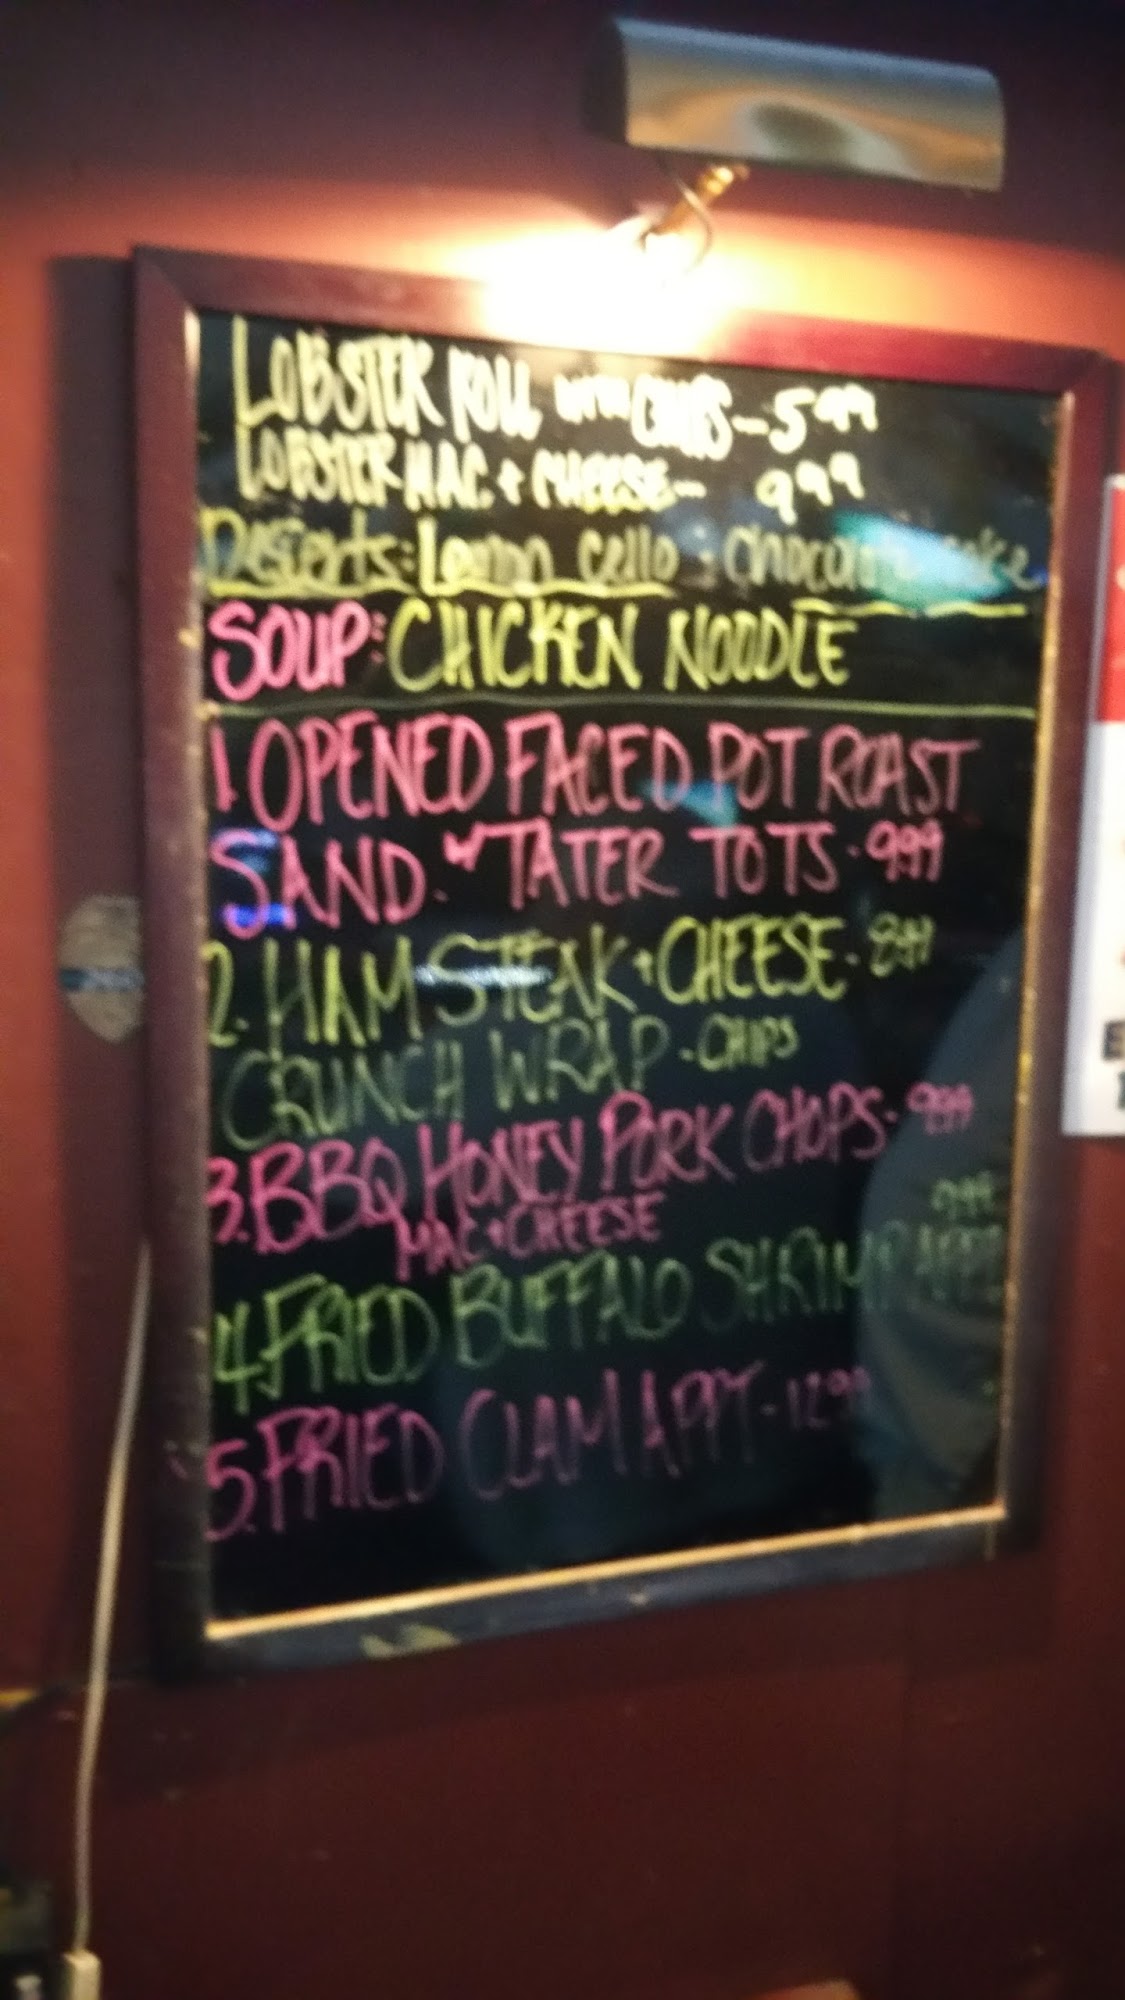 LOBSTER ROLL WITH CHIPS - 5.99
LOBSTER MAC + CHEESE - 9.99
Deserts: Lemon cello + chocolate cake
SOUP: CHICKEN NOODLE
1. OPENED FACED POT ROAST
SAND. w/ TATER TOTS - 9.99
2. HAM STEAK + CHEESE - 8.99
CRUNCH WRAP - CHIPS
3. BBQ HONEY PORK CHOPS - 9.99
MAC + CHEESE
4. FRIED BUFFALO SHRIMP APPT 9.99
5. FRIED CLAM APPT - 12.99